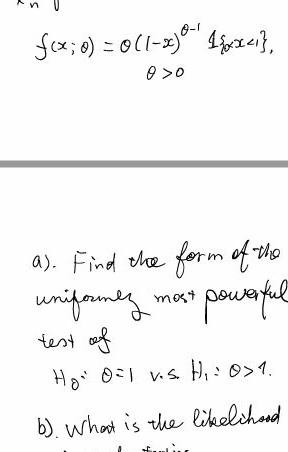 f(x; θ) = θ(1-x)^{θ-1} 1{0<x<1},
θ > 0
a). Find the form of the
uniformly most powerful
test of
H₀: θ=1 v.s. H₁: θ>1.
b). What is the likelihood